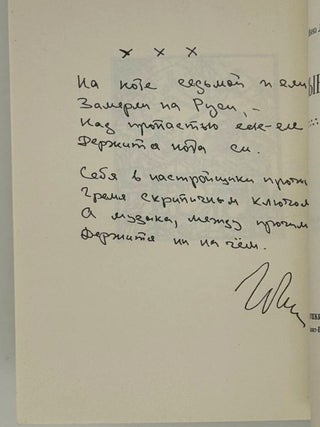 × × ×
На ноте седьмой и
Замерли на Руси, –
Над пропастью еле-еле
Держится нота си.
Себя в настройщики проч
Гремя скрипичным ключом
А музыка, между прочим
Держится ни на чём.